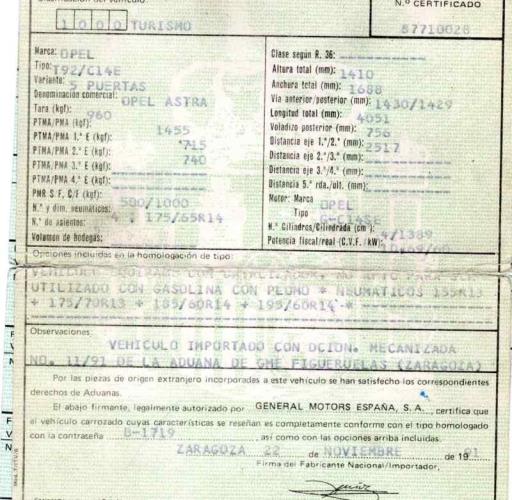 Clasificación del vehículo
Nº CERTIFICADO
1 0 0 0 TURISMO
B7710028
Marca: OPEL
Tipo: T92/C14E
Variante: 5 PUERTAS
Denominación comercial: OPEL ASTRA
Tara (kgf): 960
PTMA/PMA (kgf): 1455
PTMA/PMA 1.º E (kgf): 715
PTMA/PMA 2.º E (kgf): 740
PTMA/PMA 3.º E (kgf):
PTMA/PMA 4.º E (kgf):
PMR S.F, C/F (kgf): 500/1000
N.º y dim. neumáticos: 4 : 175/65R14
N.º de asientos:
Volumen de bodegas:
Clase según R. 36:
Altura total (mm): 1410
Anchura total (mm): 1688
Vía anterior/posterior (mm): 1430/1429
Longitud total (mm): 4051
Voladizo posterior (mm): 756
Distancia eje 1.º/2.º (mm): 2517
Distancia eje 2.º/3.º (mm):
Distancia eje 3.º/4.º (mm):
Distancia 5.ª rda./ult. (mm):
Motor: Marca OPEL
Tipo G-C14SE
N.º Cilindros/Cilindrada (cm³): 4/1389
Potencia fiscal/real (C.V.F./kW): /60
Opciones incluidas en la homologación de tipo:
VEHICULO EQUIPADO CON CATALIZADOR, NO APTO PARA SER
UTILIZADO CON GASOLINA CON PLOMO * NEUMATICOS 155R13
+ 175/70R13 + 185/60R14 + 195/60R14 *
Observaciones:
VEHICULO IMPORTADO CON DCION. MECANIZADA
NO. 11/91 DE LA ADUANA DE GME FIGUERUELAS (ZARAGOZA)
Por las piezas de origen extranjero incorporadas a este vehículo se han satisfecho los correspondientes
derechos de Aduanas.
El abajo firmante, legalmente autorizado por GENERAL MOTORS ESPAÑA, S.A., certifica que
el vehículo carrozado cuyas características se reseñan es completamente conforme con el tipo homologado
con la contraseña B-1719, así como con las opciones arriba incluidas.
ZARAGOZA 22 de NOVIEMBRE de 1991
Firma del Fabricante Nacional/Importador,